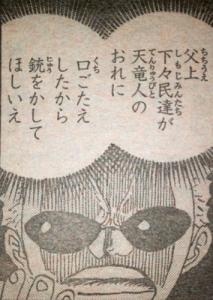 父上
下々民達が
天竜人の
おれに
口ごたえ
したから
銃をかして
ほしいえ